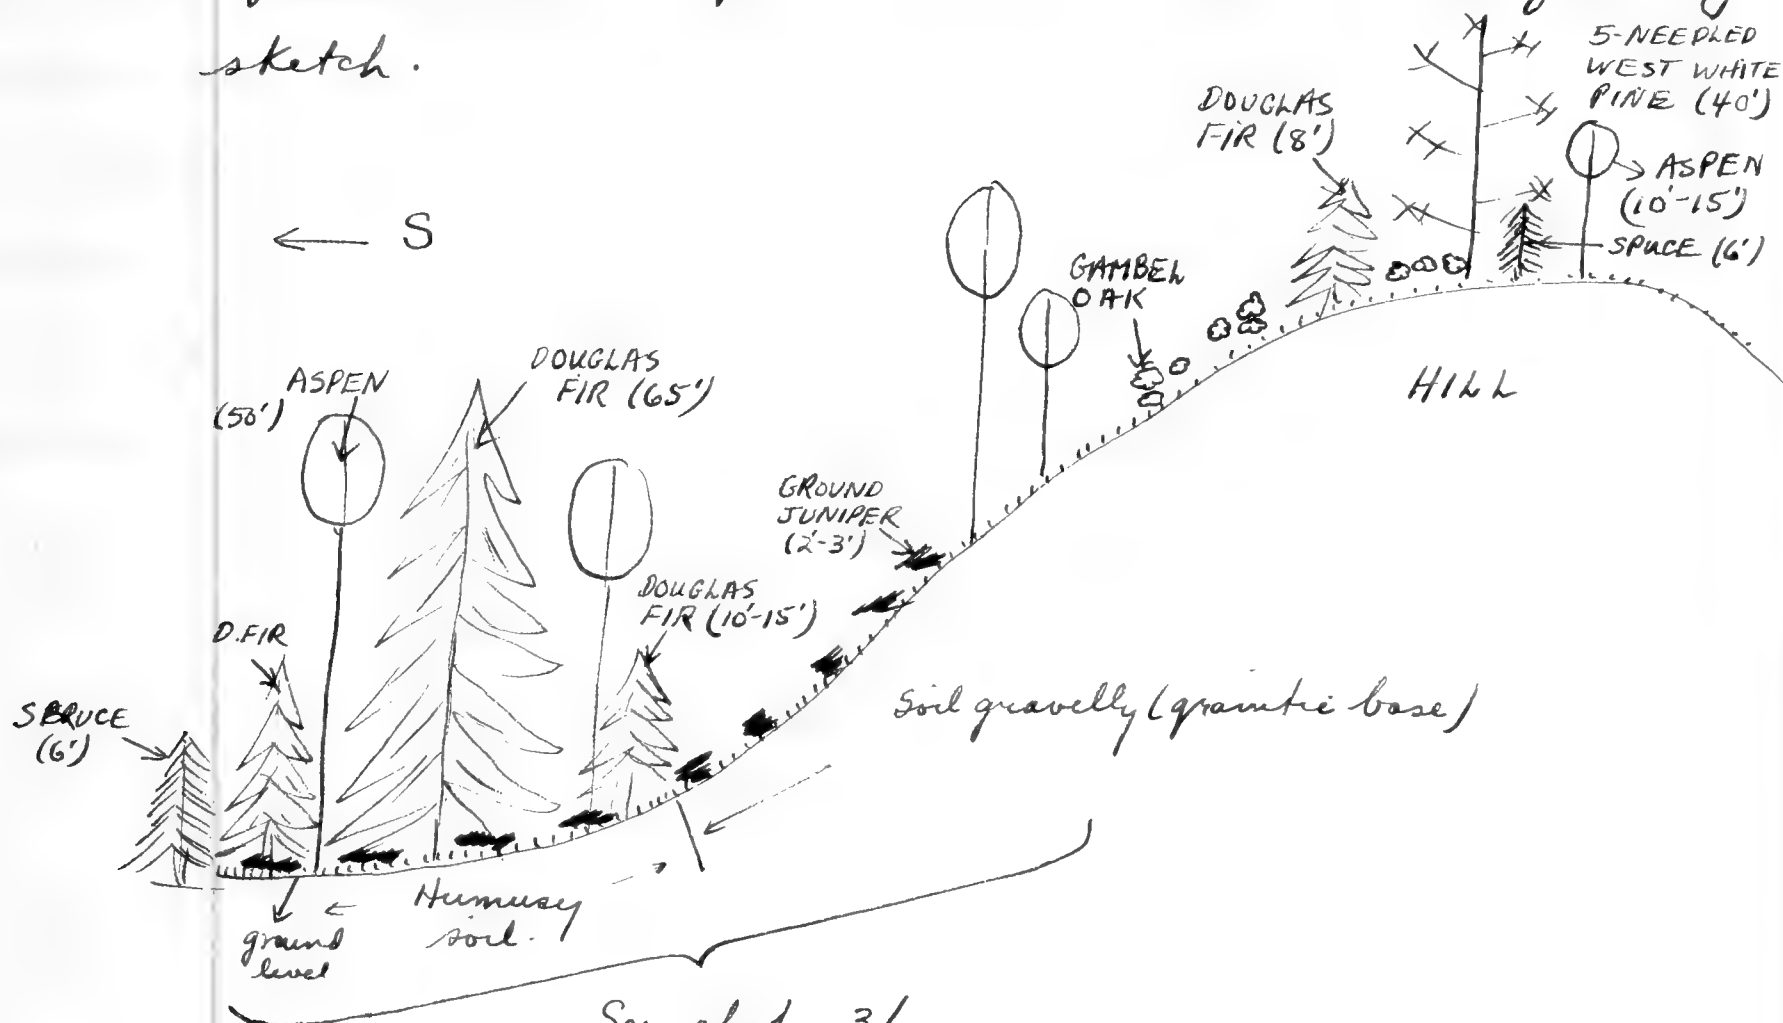 sketch.
5-NEEDLED
WEST WHITE
PINE (40')
DOUGLAS
FIR (8')
ASPEN
(10'-15')
SPUCE (6')
← S
GAMBEL
OAK
HILL
DOUGLAS
FIR (65')
ASPEN
(50')
GROUND
JUNIPER
(2'-3')
DOUGLAS
FIR (10'-15')
D.FIR
SPRUCE
(6')
Soil gravelly (granitic base)
Humusy
soil.
ground
level